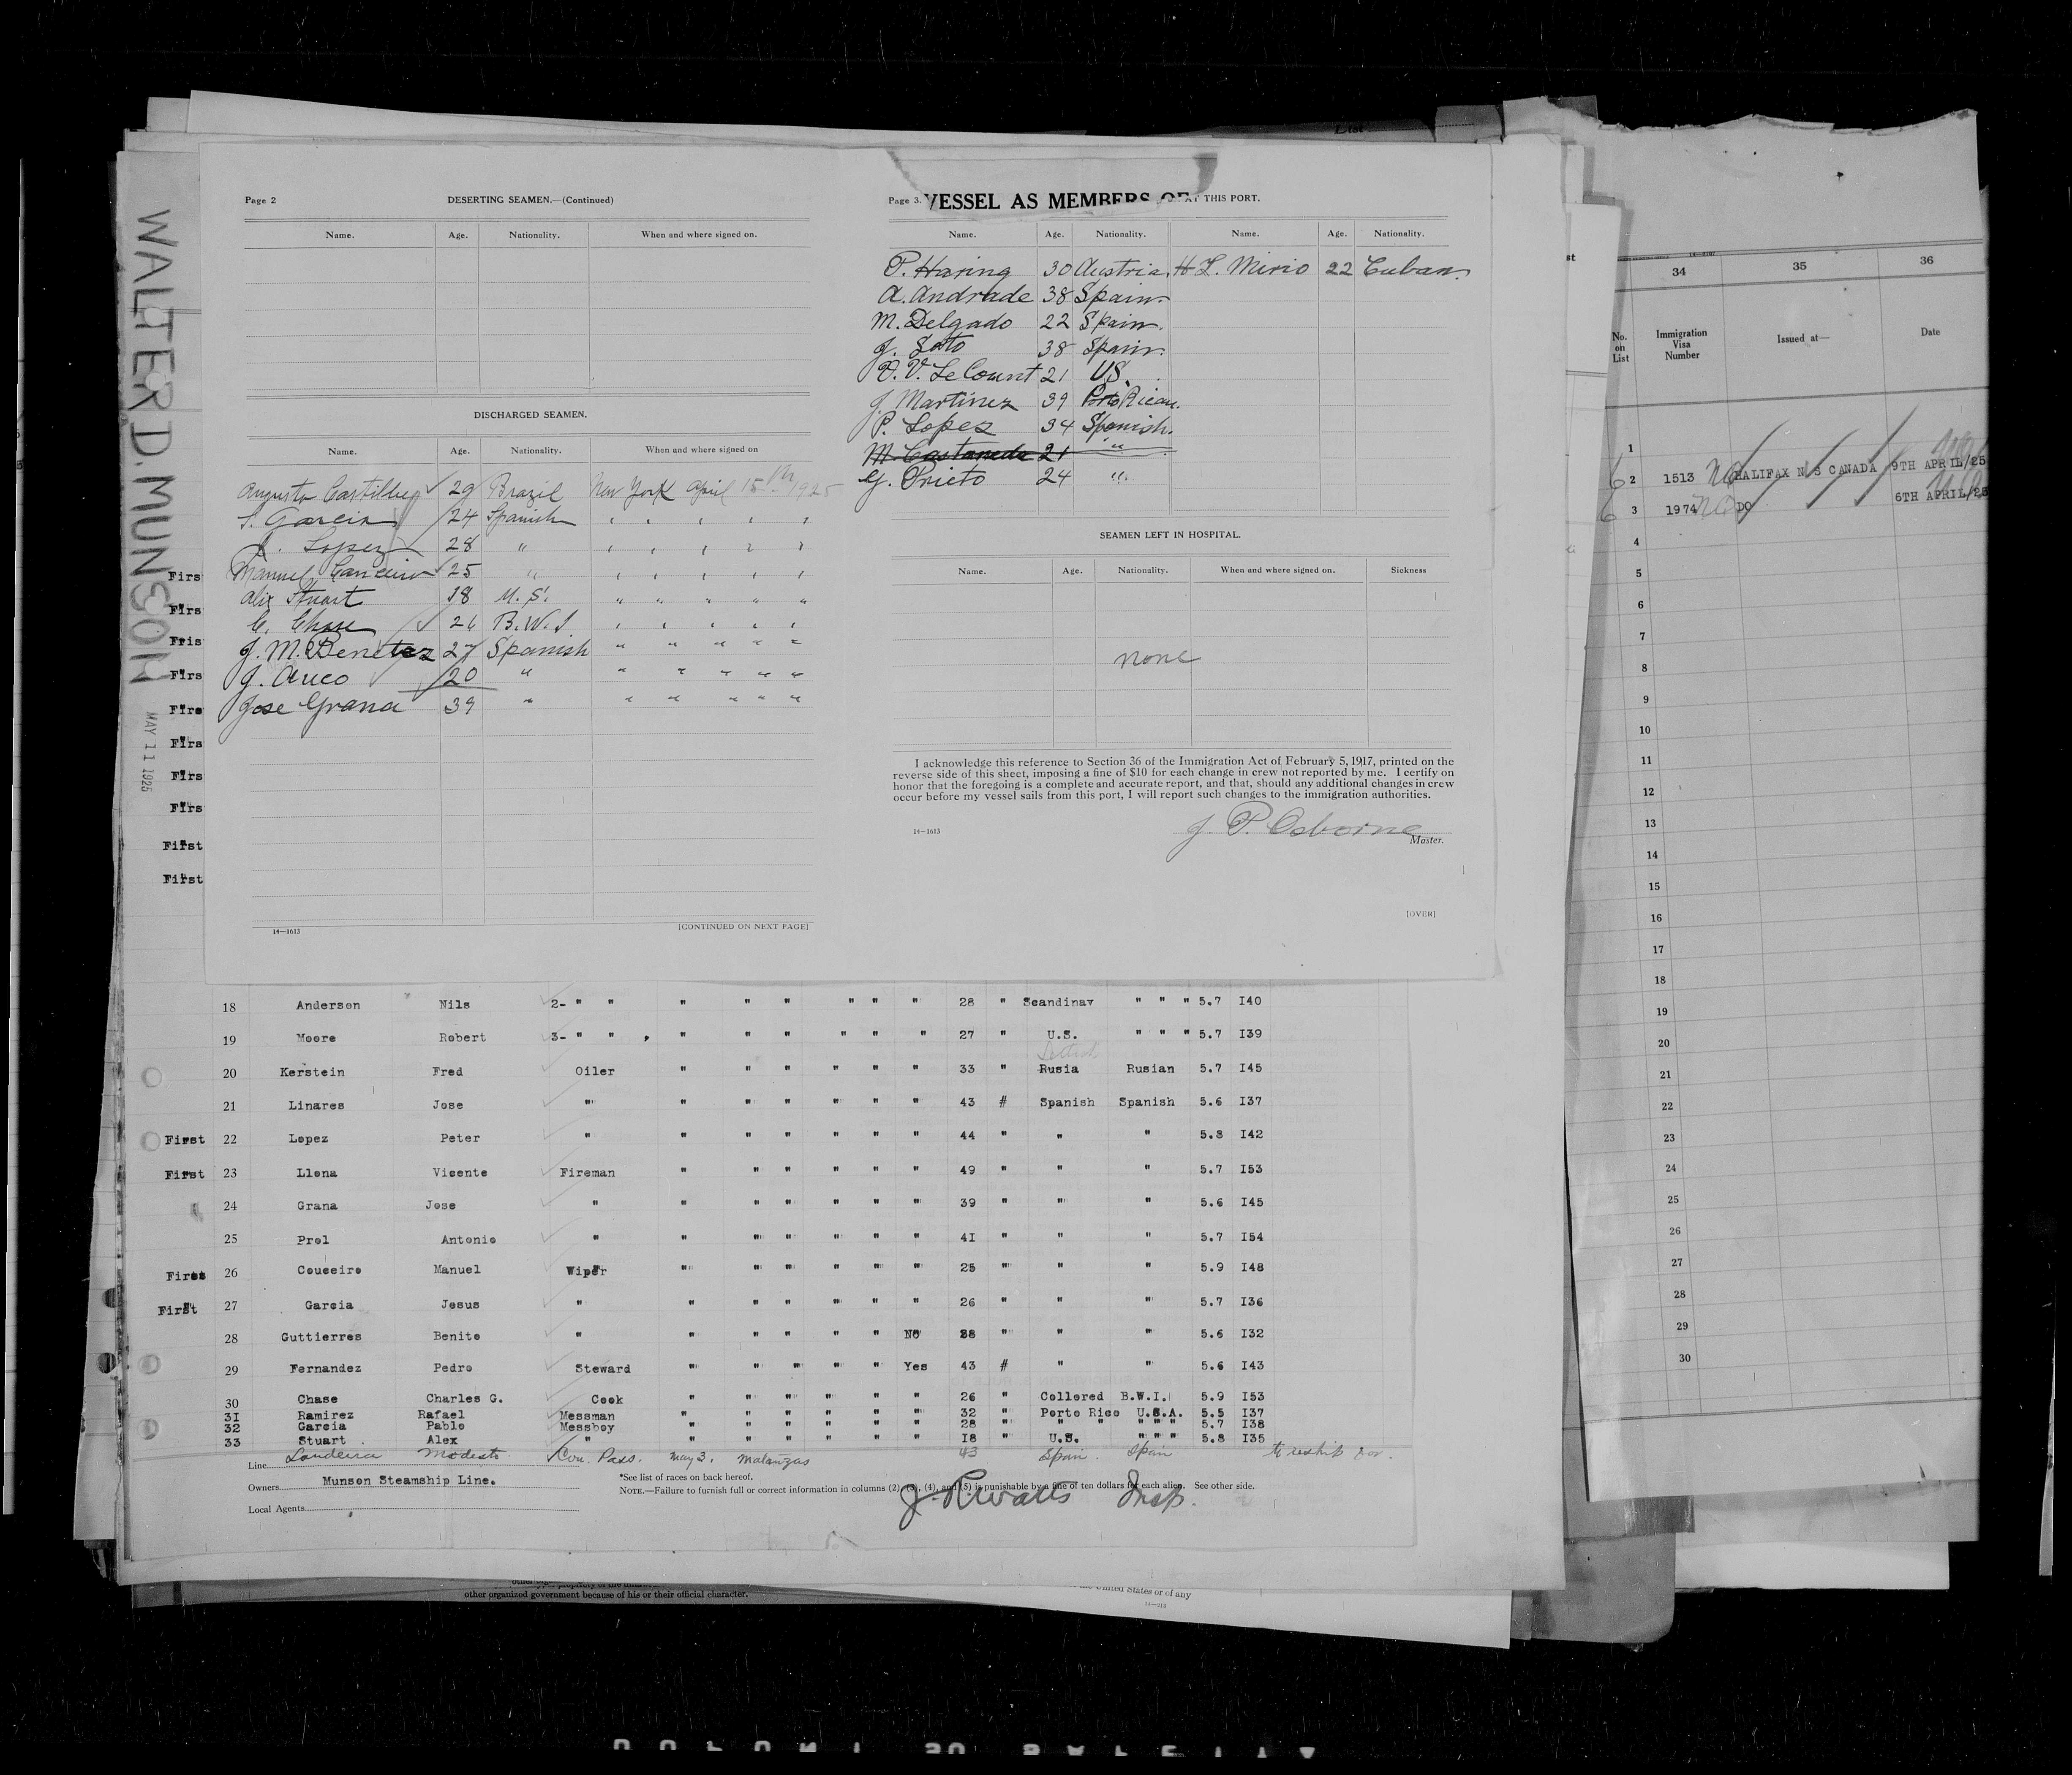 List
WALTER D. MUNSON
MAY 11 1925
Page 2
DESERTING SEAMEN.—(Continued)
Name. Age. Nationality. When and where signed on.
DISCHARGED SEAMEN.
Name. Age. Nationality. When and where signed on
Augusto 29 Brazil New York April 15th 1925
S. Garcia 24 Spanish " " " " "
J. Lopez 28 " " " " " "
Manuel 25 " " " " " "
Alix Stuart 18 U.S. " " " " "
C. Chase 26 B.W.I " " " " "
J. M. Benetez 27 Spanish " " " " "
J. 20 " " " " " "
Jose Grana 39 " " " " " "
14—1613 [CONTINUED ON NEXT PAGE]
Page 3. VESSEL AS MEMBERS OF AT THIS PORT.
Name. Age. Nationality. Name. Age. Nationality.
P. Haring 30 Austria. H L. Mirio 22 Cuban.
A. Andrade 38 Spain
M. Delgado 22 Spain.
J. Soto 38 Spain.
V. LeCount 21 US.
J. Martinez 39 Porto Rican.
P. Lopez 34 Spanish.
M. Castaneda 21 "
G. Prieto 24 "
SEAMEN LEFT IN HOSPITAL.
Name. Age. Nationality. When and where signed on. Sickness
none
I acknowledge this reference to Section 36 of the Immigration Act of February 5, 1917, printed on the
reverse side of this sheet, imposing a fine of $10 for each change in crew not reported by me. I certify on
honor that the foregoing is a complete and accurate report, and that, should any additional changes in crew
occur before my vessel sails from this port, I will report such changes to the immigration authorities.
14—1613
J. P. Osborne
Master.
[OVER]
Firs
Firs
Fris
Firs
Fire
Firs
Firs
Firs
First
First
18 Anderson Nils 2- " " " " " " " " 28 " Scandinav " " " 5.7 I40
19 Moore Robert 3- " " , " " " " " " 27 " U.S. " " " 5.7 I39
20 Kerstein Fred Oiler " " " " " " 33 " Rusia Rusian 5.7 I45
21 Linares Jose " " " " " " " 43 # Spanish Spanish 5.6 I37
First 22 Lopez Peter " " " " " " " 44 " " " 5.8 I42
First 23 Llona Vicente Fireman " " " " " " 49 " " " 5.7 I53
24 Grana Jose " " " " " " " 39 " " " 5.6 I45
25 Prol Antonio " " " " " " " 41 " " " 5.7 I54
First 26 Couceiro Manuel Wiper " " " " " " 25 " " " 5.9 I48
First 27 Garcia Jesus " " " " " " " 26 " " " 5.7 I36
28 Guttierres Benito " " " " " " No 28 " " " 5.6 I32
29 Fernandez Pedro Steward " " " " " Yes 43 # " " 5.6 I43
30 Chase Charles G. Cook " " " " " " 26 " Collored B.W.I. 5.9 I53
31 Ramirez Rafael Messman " " " " " " 32 " Porto Rico U.S.A. 5.5 I37
32 Garcia Pablo Messboy " " " " " " 28 " " " " " " 5.7 I38
33 Stuart Alex " " " " " " " 18 " U.S. " " " 5.8 I35
Landeira Modesto Con. Pass. May 3, Matanzas 43 Spain. Spain to reship for.
Line
Owners Munson Steamship Line.
Local Agents
*See list of races on back hereof.
NOTE.—Failure to furnish full or correct information in columns (2), (3), (4), and (5) is punishable by a fine of ten dollars for each alien. See other side.
J. R. Watts Insp.
other organized government because of his or their official character.
United States or of any
34 35 36
No. on List
Immigration Visa Number
Issued at—
Date
1
2 1513 NQ HALIFAX N S CANADA 9TH APRIL/25
3 1974 NQ DO 6TH APRIL/25
4
5
6
7
8
9
10
11
12
13
14
15
16
17
18
19
20
21
22
23
24
25
26
27
28
29
30